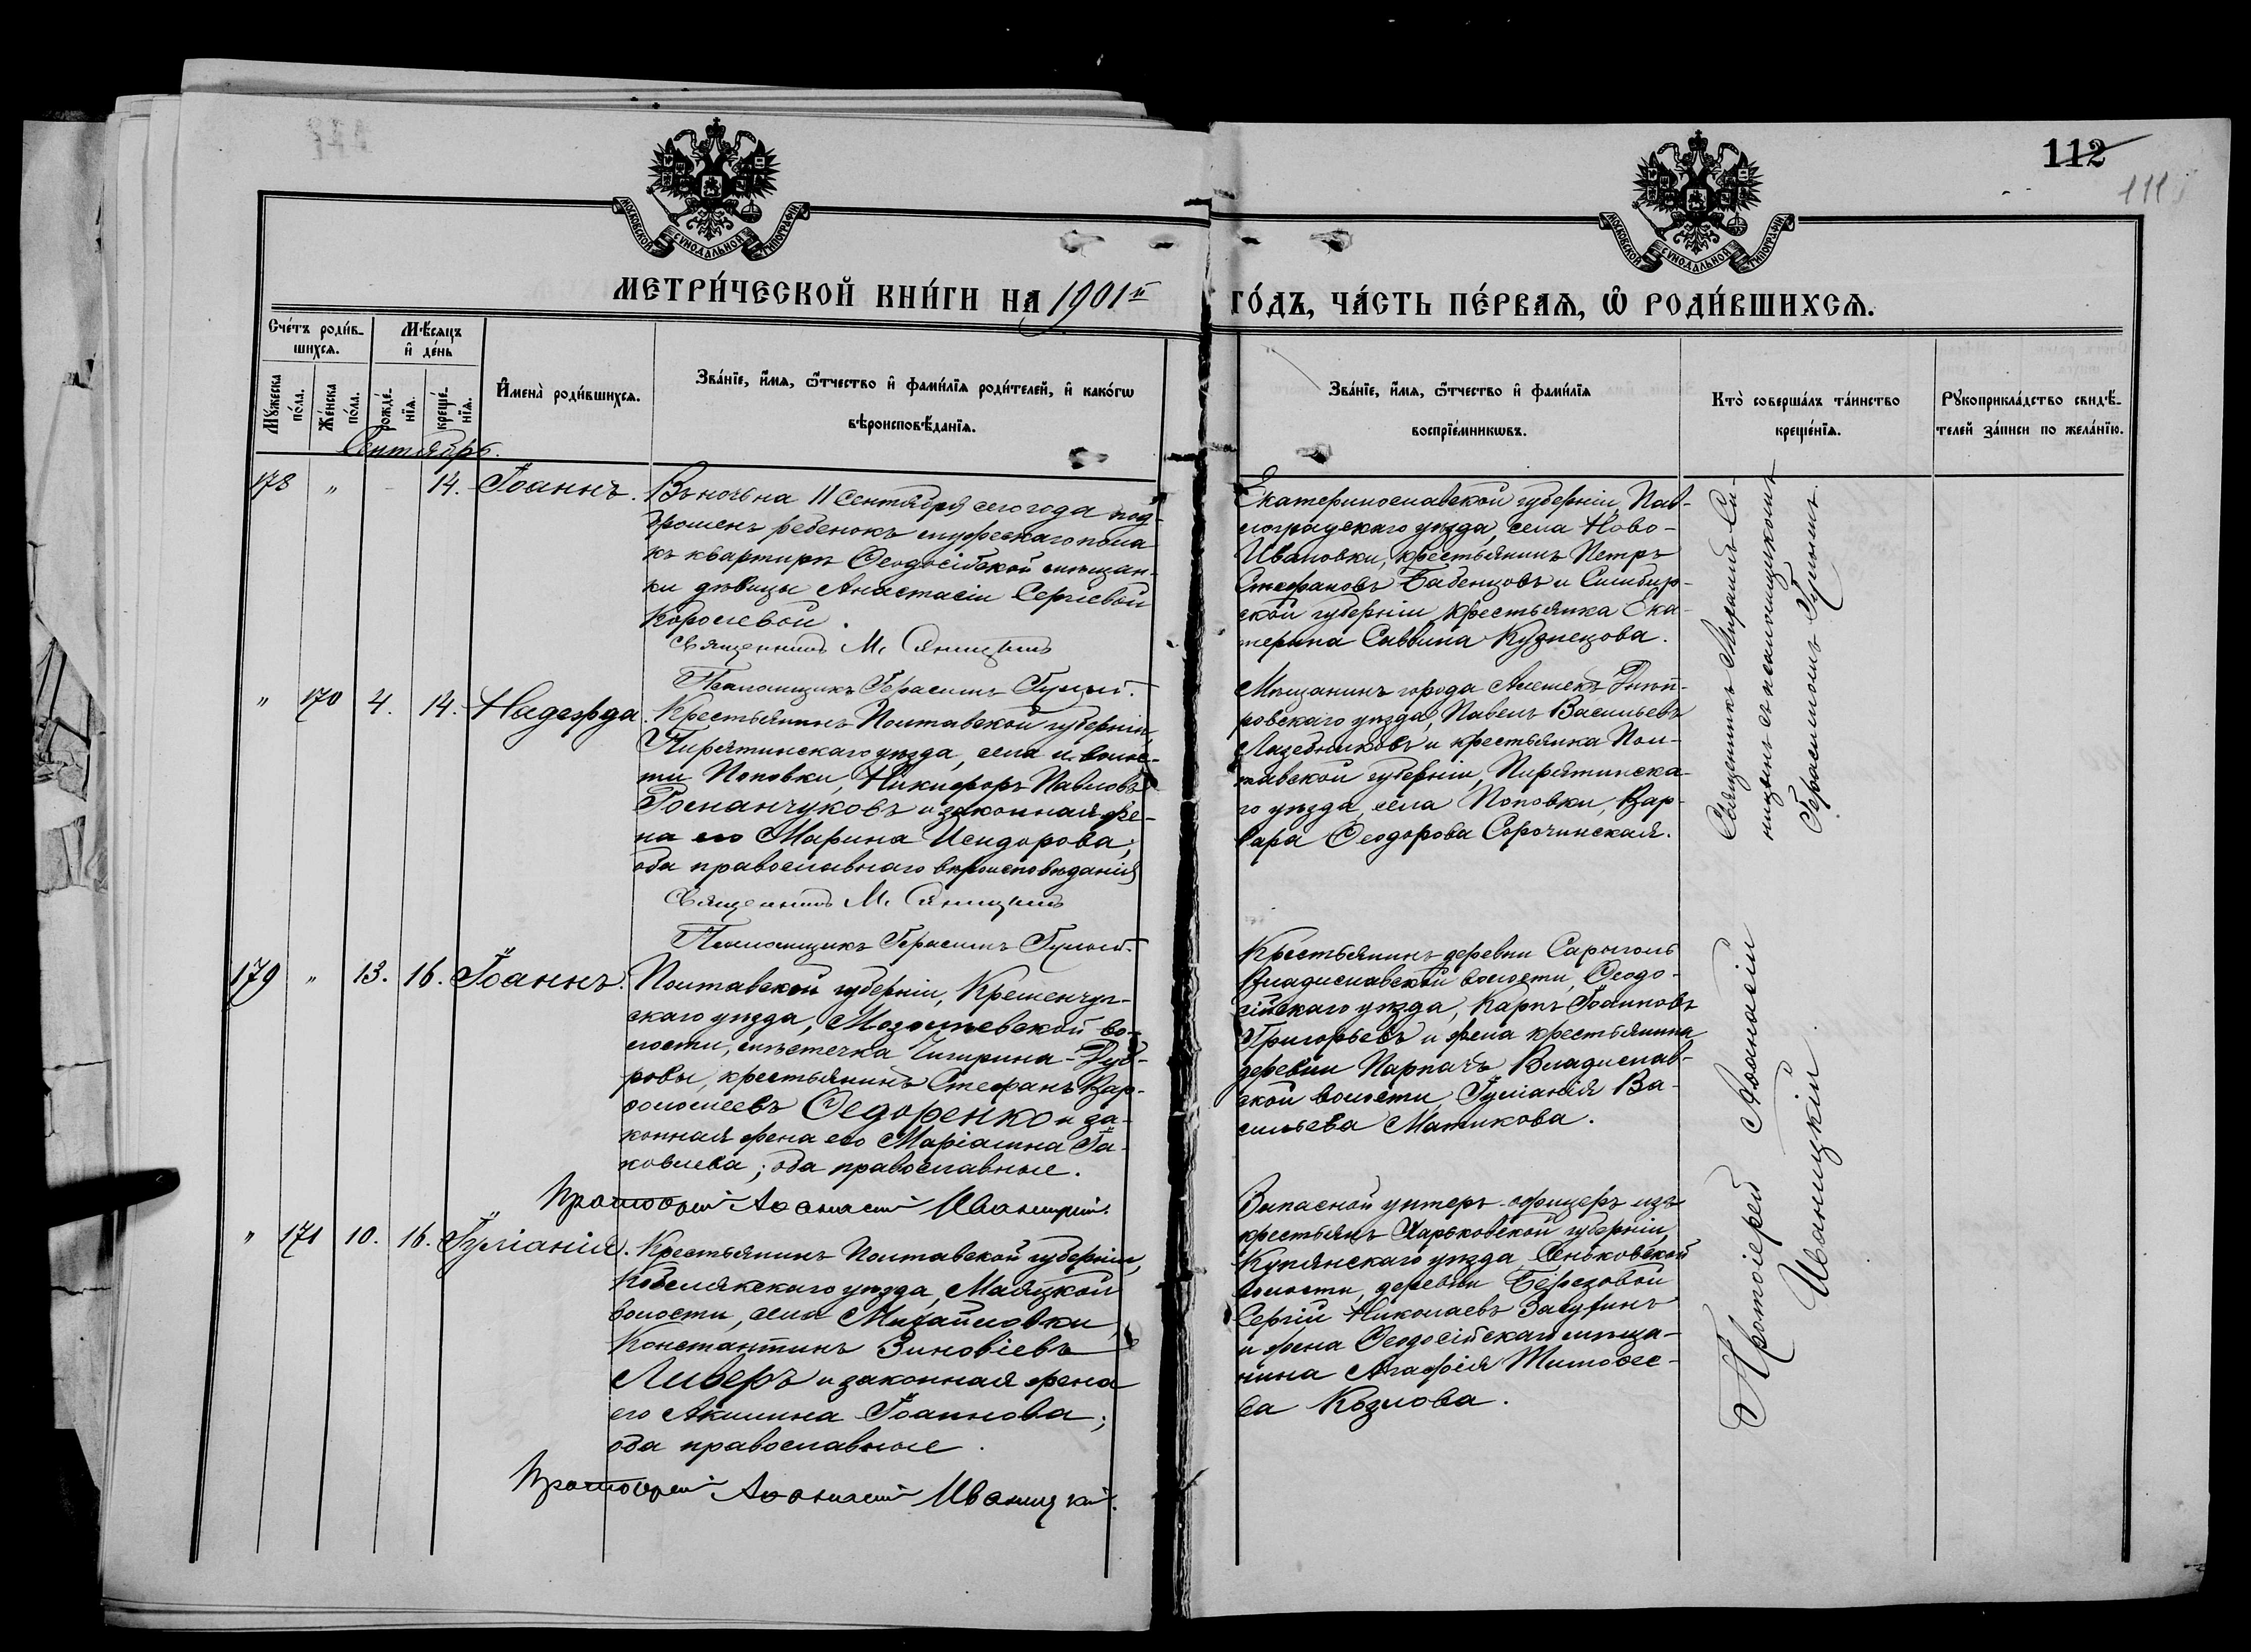 112
111
МОСКОВСКОЙ СѴНОДАЛЬНОЙ ТИПОГРАФІИ
МОСКОВСКОЙ СѴНОДАЛЬНОЙ ТИПОГРАФІИ
МЕТРИ́ЧЕСКОЙ КНИ́ГИ НА 1901й
ГО́ДЪ, ЧА́СТЬ ПЕ́РВАЯ, Ѿ РОДИ́ВШИХСЯ.
Сче́тъ роди́в-
шихся.
Мѣ́сяцъ
и҆ де́нь
Мꙋ́жеска по́ла.
Же́нска по́ла.
рожде́-
нїя.
креще́-
нїя.
И҆мена̀ роди́вшихся.
Зва́нїе, и҆́мя, ѻ҆́тчество и҆ фами́лїя роди́телей, и҆ како́гѡ
вѣроисповѣ́данїя.
Зва́нїе, и҆́мя, ѻ҆́тчество и҆ фами́лїя
воспрїе́мникѡвъ.
Кто̀ соверша́лъ та́инство
креще́нїя.
Рꙋкоприкла́дство свидѣ́-
телей за́писи по жела́нїю.
Сентябрь.
178 " - 14. Іоаннъ. Въ ночь на 11 Сентября сего года под-
брошенъ ребенокъ мужескаго пола
къ квартирѣ Ѳеодосійской мѣщан-
ки дѣвицы Анастасіи Сергіевой
Королевой.
Священникъ М. Синицынъ
Псаломщикъ Герасимъ Гуцый.
Екатеринославской губерніи, Пав-
лоградскаго уѣзда, села Ново-
Ивановки, крестьянинъ Петръ
Стефановъ Бабенцовъ и Симбир-
ской губерніи крестьянка Ека-
терина Саввина Кузнецова.
Священникъ Михаилъ Си-
ницынъ съ псаломщикомъ
Герасимомъ
" 170 4. 14. Надежда. Крестьянинъ Полтавской губерніи,
Пирятинскаго уѣзда, села и волос-
ти Поповки, Никифоръ Павловъ
и законная же-
на его Марина Исидорова;
оба православнаго вѣроисповѣданія
Священникъ М. Синицынъ
Псаломщикъ Герасимъ
Мѣщанинъ города Алешекъ Днѣп-
ровскаго уѣзда, Павелъ Васильевъ
Лазебниковъ и крестьянка Пол-
тавской губерніи, Пирятинска-
го уѣзда, села Поповки, Вар-
вара Ѳеодорова Сорочинская.
179 " 13. 16. Іоаннъ. Полтавской губерніи, Кременчуг-
скаго уѣзда, Мозолѣевской во-
лости, мѣстечка Чигирина-Дуб-
ровы, крестьянинъ Стефанъ Вар-
ѳоломеевъ Ѳедоренко и за-
конная жена его Маріамна Іа-
ковлева; оба православные.
Протоіерей Аѳанасій Иваницкій.
Крестьянинъ деревни Сарыголь
Владиславской волости, Ѳеодо-
сійскаго уѣзда, Карпъ Іоанновъ
Григорьевъ и жена крестьянина
деревни Парпачъ Владислав-
ской волости Іуліанія Ва-
сильева Матикова.
Протоіерей Аѳанасій
Иваницкій.
" 171 10. 16. Іуліанія. Крестьянинъ Полтавской губерніи,
Кобелякскаго уѣзда, Маяцкой
волости, села Михайловки,
Константинъ Зиновіевъ
Ливеръ и законная жена
его Акилина Іоаннова;
оба православные.
Протоіерей Аѳанасій Иваницкій.
Запасной унтеръ-офицеръ изъ
крестьянъ Харьковской губерніи,
Купянскаго уѣзда Сеньковской
волости, деревни Березовой
Сергій Николаевъ
и жена Ѳеодосійскаго мѣща-
нина Агафія Тимоѳее-
ва Козлова.